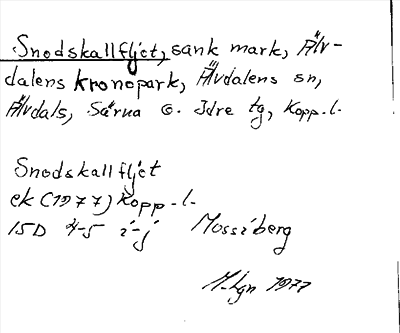 Snodskallfljet, sank mark, Älv-
dalens kronopark, Älvdalens sn,
Älvdals, Särna o. Idre tg, Kopp.l.
Snodskallfljet
ek (1977) Kopp.l.
15D 4-5 i-j Mossiberg
1977